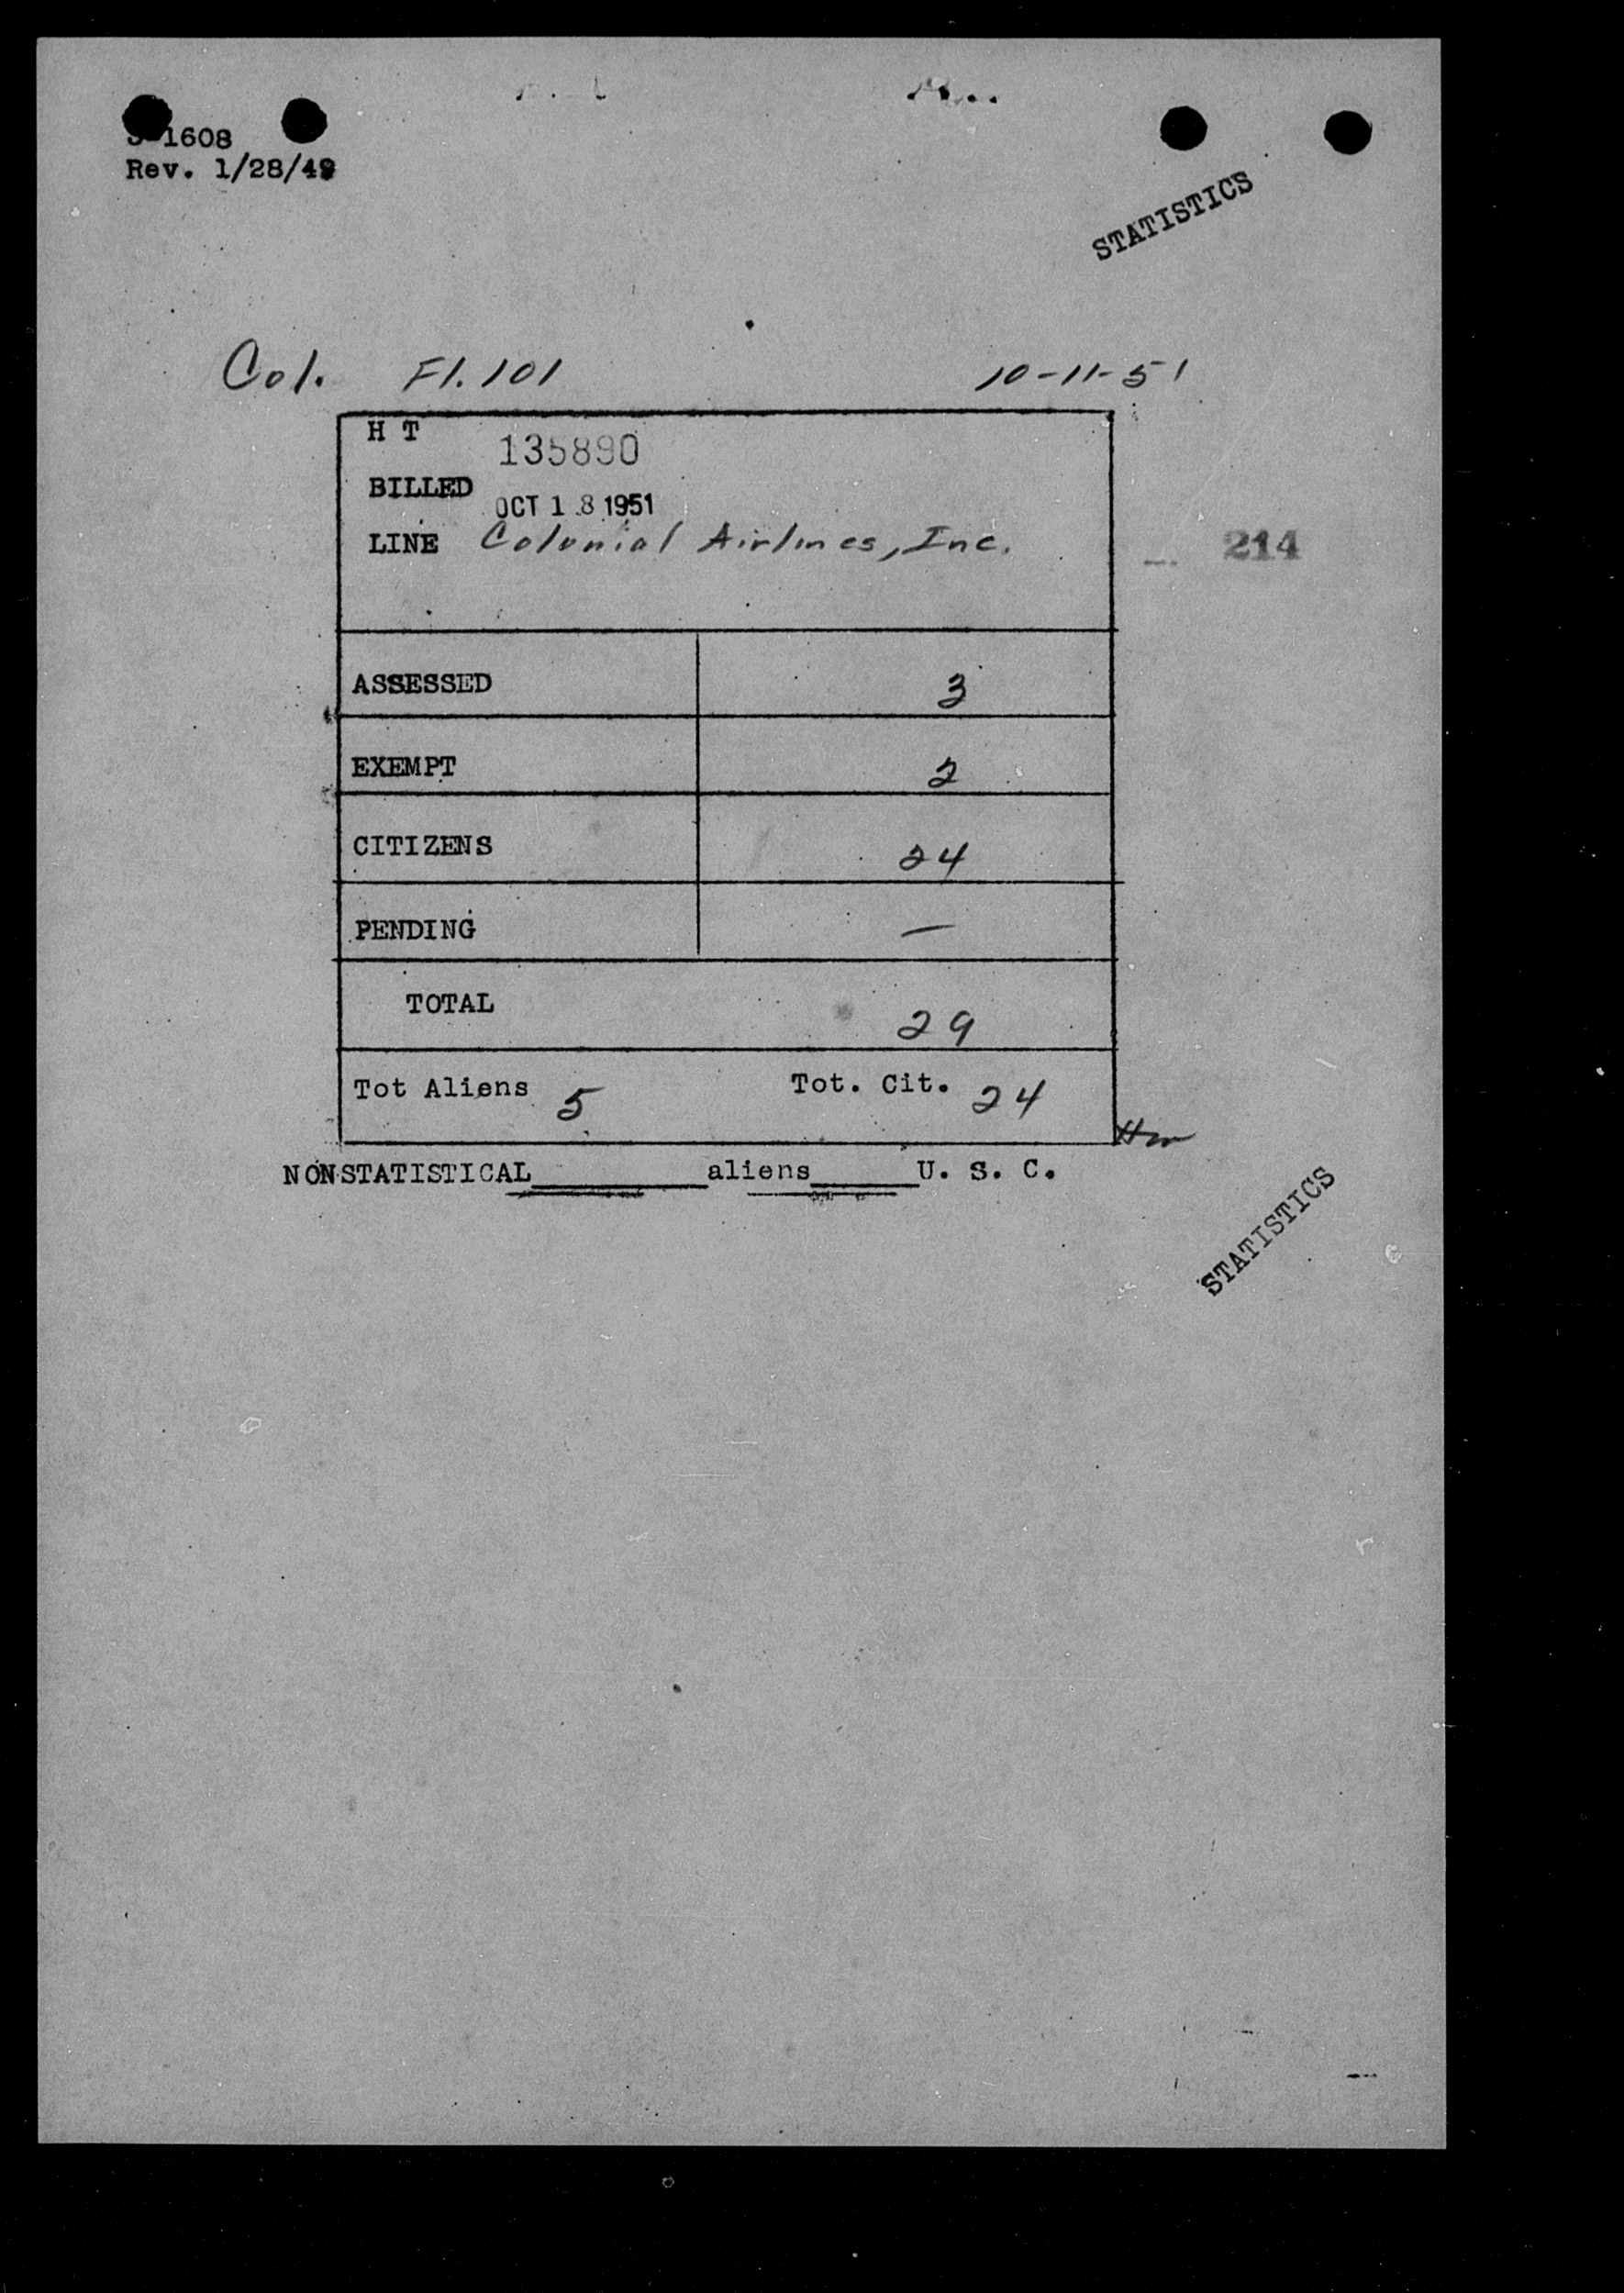 1608
Rev. 1/28/49
STATISTICS
Col. Fl. 101 10-11-51
H T 135890
BILLED OCT 18 1951
LINE Colonial Airlines, Inc.
214
ASSESSED 3
EXEMPT 2
CITIZENS 24
PENDING —
TOTAL 29
Tot Aliens 5 Tot. Cit. 24
NONSTATISTICAL______aliens____U. S. C.
STATISTICS